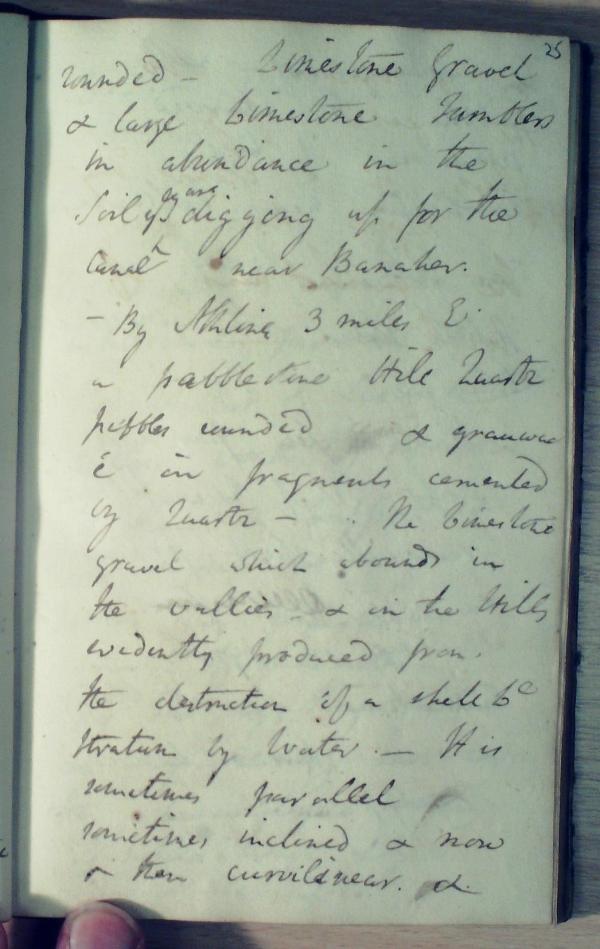 25
rounded - Limestone gravel
& large Limestone Tumblers
in abundance in the
Soil they are digging up for the
canal near Banaher.
- By Athlina 3 miles E.
a pebblestone Hill Quartz
pebbles rounded & grauwac
é in fragments cemented
by Quartz - The Limestone
gravel which abounds in
the vallies - & in the Hills
evidently produced from
the destruction of a shell
stratum by Water. - It is
sometimes parallel
sometimes inclined & now
& then curvilinear. &